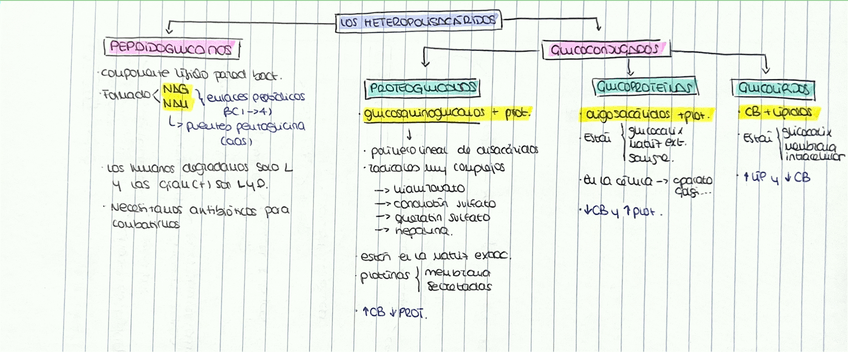 LOS HETEROPOLISACÁRIDOS
PEPTIDOGLICANOS
· componente pared bact.
· Formado
NAG
NAM
enlaces peptídicos
β(1→4)
↳ puentes pentaglicina
(aas)
· Los humanos degradamos solo L
y las gram(+) son L y D.
· Necesitamos antibióticos para
combatirlos
GLICOCONJUGADOS
PROTEOGLICANOS
· glucosaminoglicanos + prot.
↓
· polímero lineal de disacáridos
· radicales muy complejos
→ hialuronato
→ condroitín sulfato
→ queratán sulfato
→ heparina.
· están en la matriz extrac.
· proteínas
membrana
secretadas
· ↑CB ↓PROT.
GLICOPROTEÍNAS
· oligosacáridos + prot.
· Están
glicocálix
matriz ext.
sangre.
· En la célula → aparato
Golgi...
· ↓CB y ↑prot.
GLICOLÍPIDOS
· CB + Lípidos
· Están
glicocálix
membrana
intracelular
· ↑LIP y ↓CB